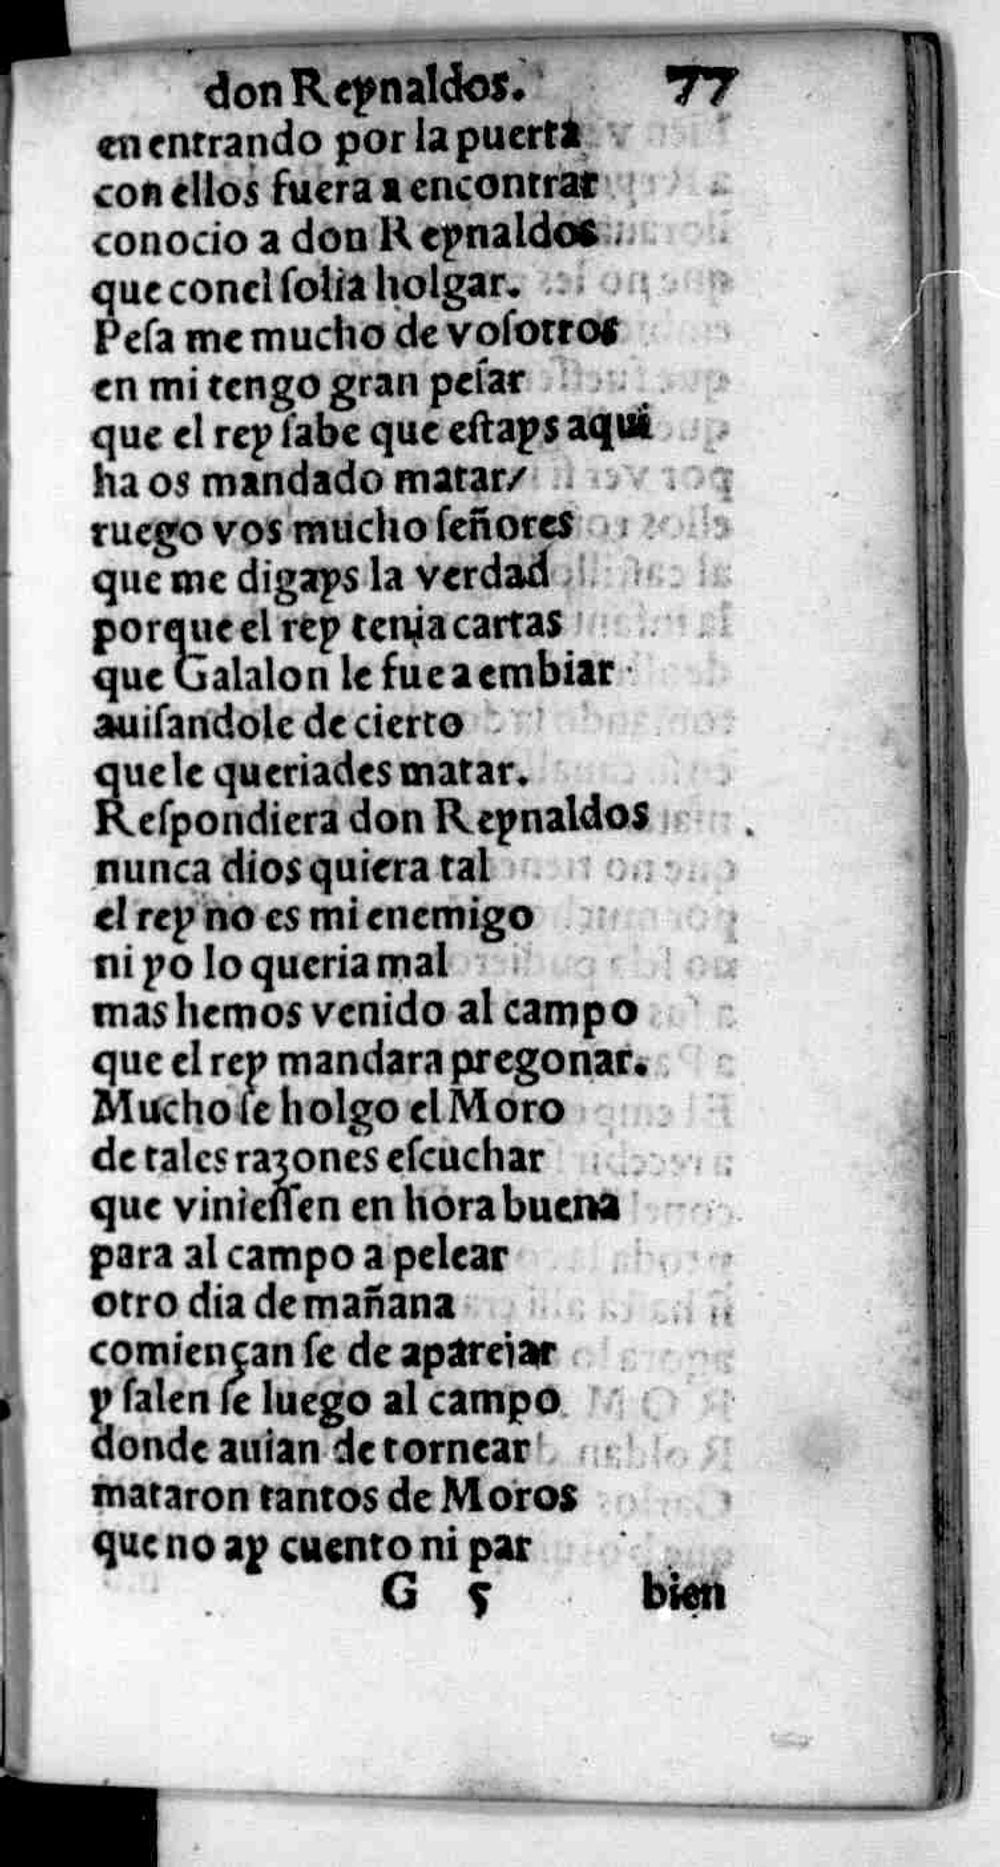 don Reynaldos. 77
en entrando por la puerta
con ellos fuera a encontrar
conocio a don Reynaldos
que conel ſolia holgar.
Peſa me mucho de voſotros
en mi tengo gran peſar
que el rey ſabe que eſtays aqui
ha os mandado matar/
ruego vos mucho ſeñores
que me digays la verdad
porque el rey tenia cartas
que Galalon le fue a embiar
auiſandole de cierto
que le queriades matar.
Reſpondiera don Reynaldos
nunca dios quiera tal
el rey no es mi enemigo
ni yo lo queria mal
mas hemos venido al campo
que el rey mandara pregonar.
Mucho ſe holgo el Moro
de tales razones eſcuchar
que vinieſſen en hora buena
para al campo a pelear
otro dia de mañana
comiençan ſe de aparejar
y ſalen ſe luego al campo
donde auian de tornear
mataron tantos de Moros
que no ay cuento ni par
G 5 bien